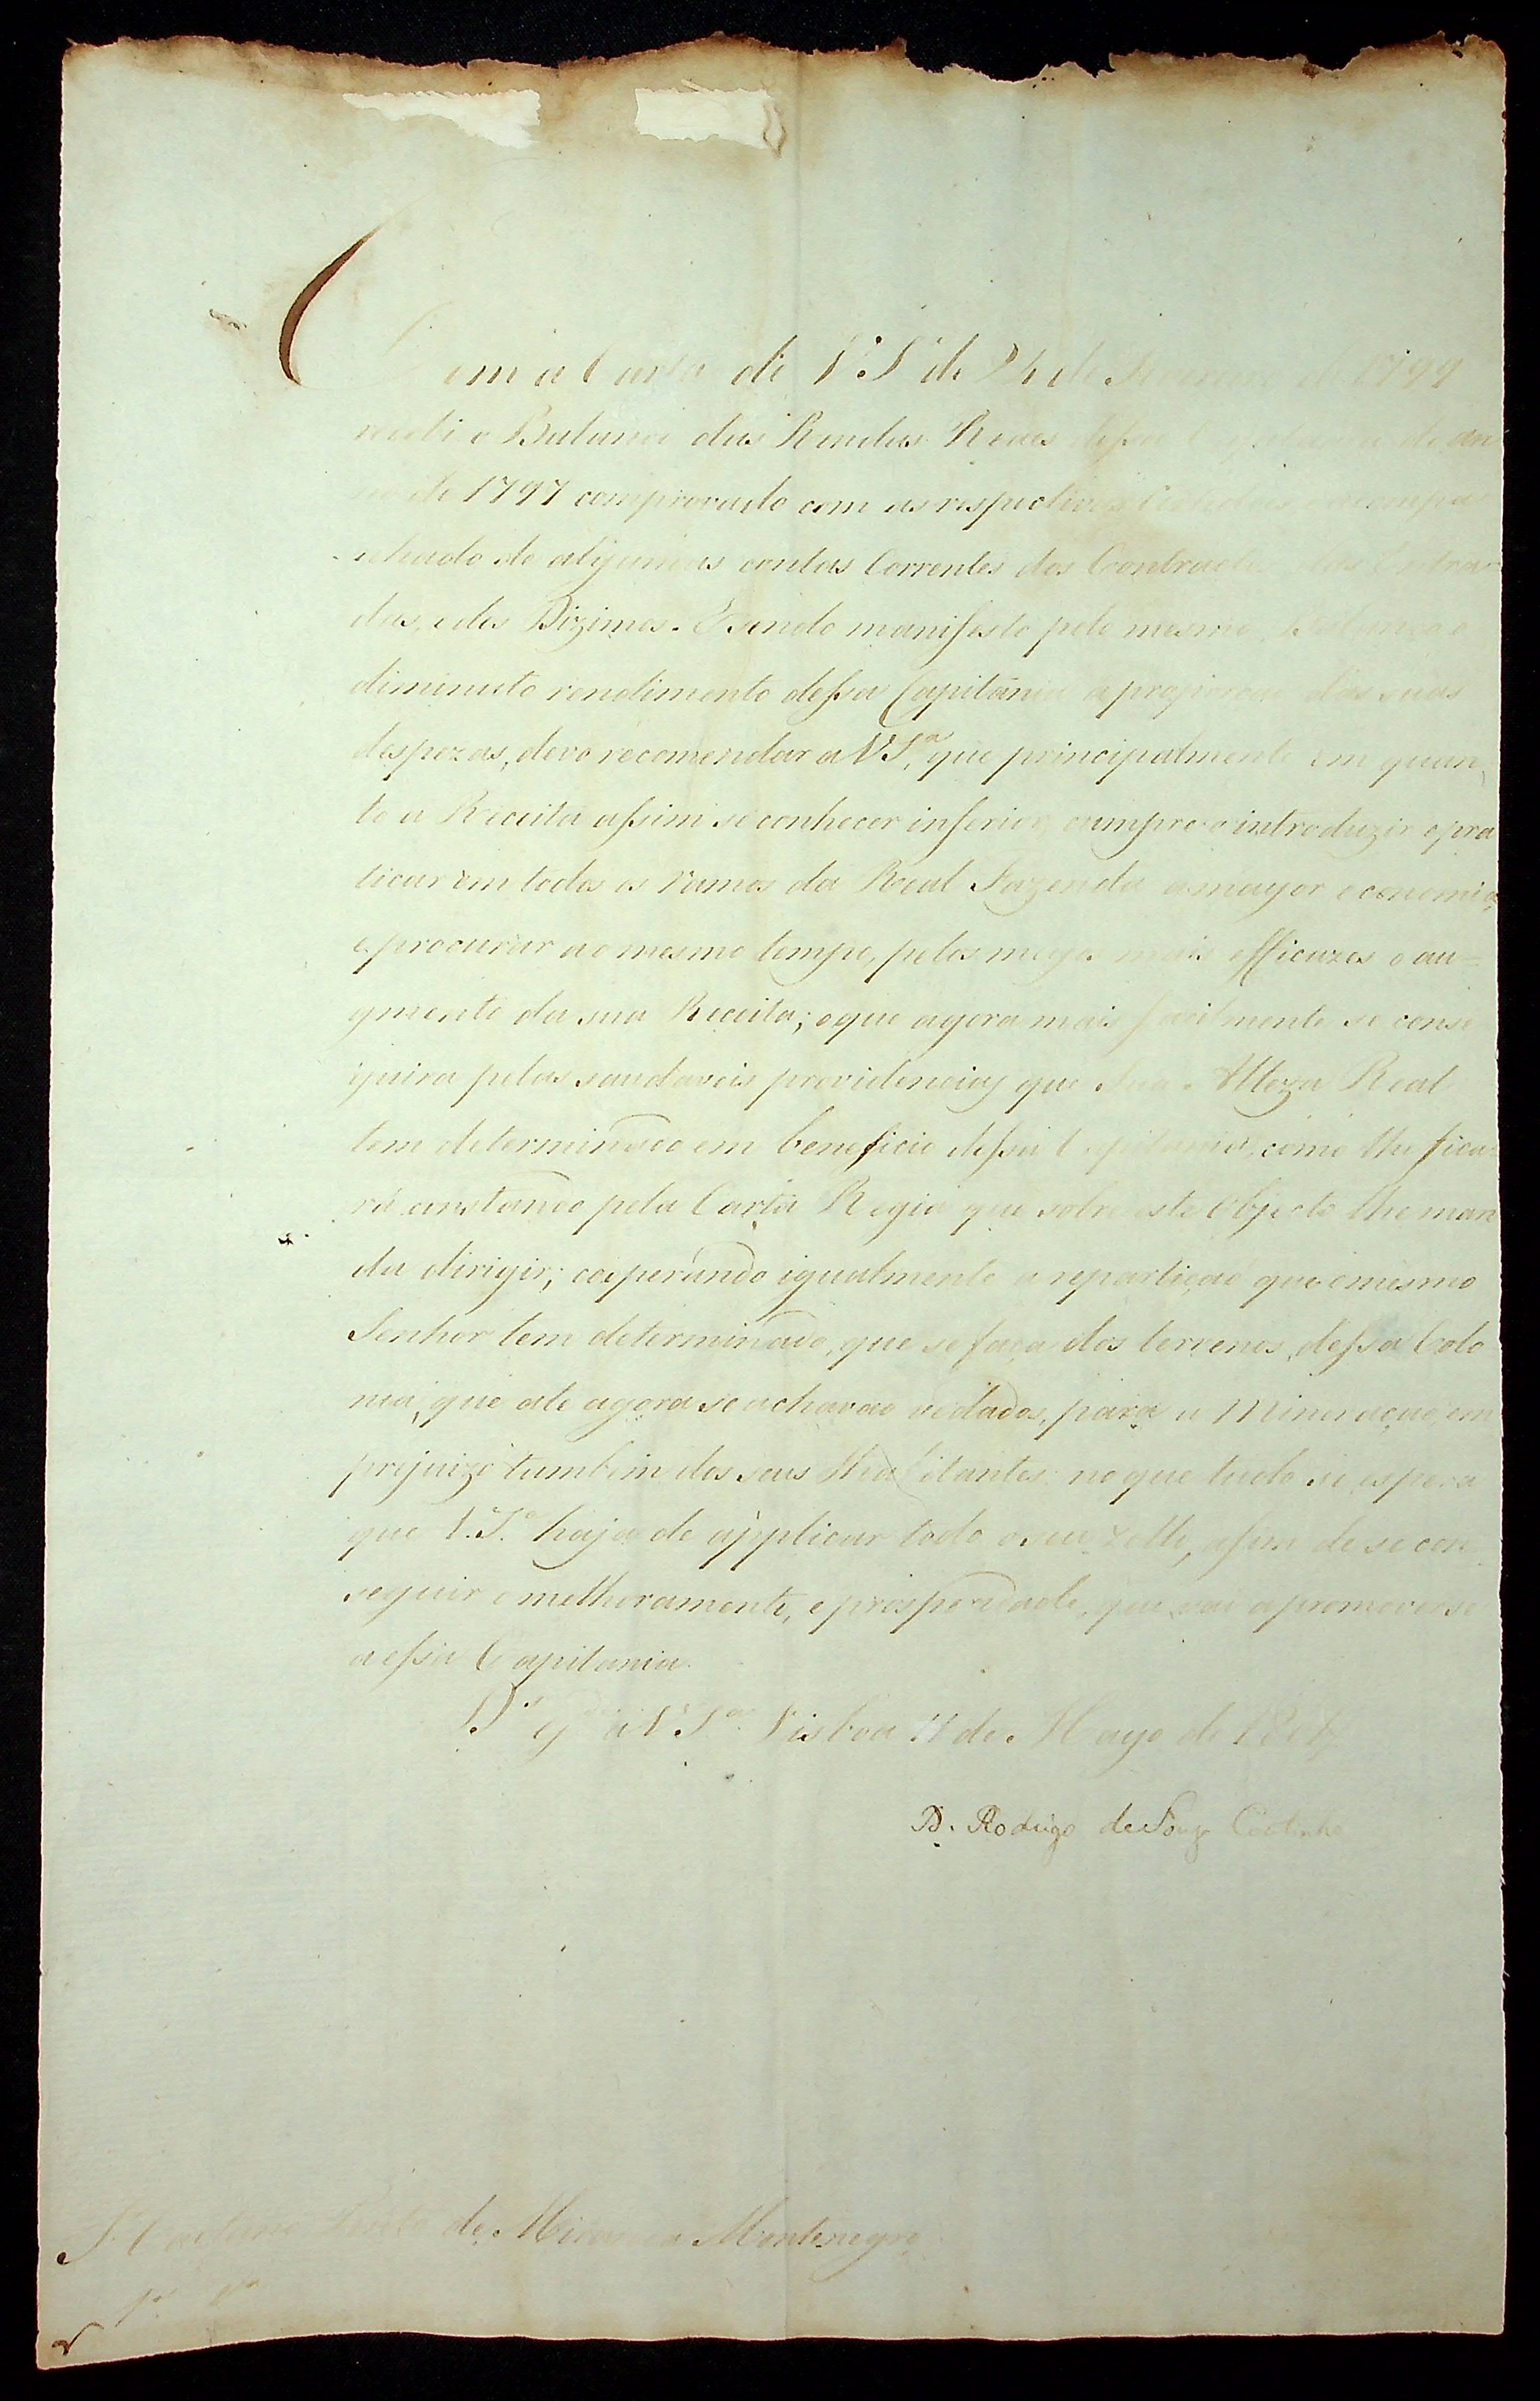 Com a Carta de V.S.ª de 24 de de 1799
recebi o Balanço das Rendas Reaes dessa do an
no de 1797 comprovado com as respectivas
nhado de algumas contas Correntes dos Contractos das Entra
das, e dos Dizimos. E sendo manifesto pelo mesmo Balanço o
diminuto rendimento dessa Capitania a proporção das suas
despezas, devo recomendar a V.S.ª, que principalmente em quan
to a Receita assim se conhecer inferior, cumpre o introduzir e pra
ticar em todos os ramos da Real Fazenda a mayor economia,
e procurar ao mesmo tempo, pelos meyos mais efficazes o au=
gmento da sua Receita; o que agora mais facilmente se conse
guira pelas saudaveis providencias que Sua Alteza Real
tem determinado em beneficio dessa Capitania, como lhe fica
rá constando pela Carta Regia que sobre este Objecto lhe man
da dirigir; cooperando igualmente a repartição que o mesmo
Senhor tem determinado, que se faça dos terrenos, dessa Colo
nia, que ate agora se achavão vedados, para a Mineração, em
prejuizo tambem dos seus Habitantes: no que tudo se espera
que V.S.ª haja de applicar todo o seu zello, afim de se con
seguir o melhoramento, e prosperidade, que vai a promover-se
a essa Capitania.
D.s g.de a V.S.ª Lisboa 11 de Mayo de
D. Rodrigo de Souza Coutinho
S.r Caetano Pinto de Miranda Montenegro